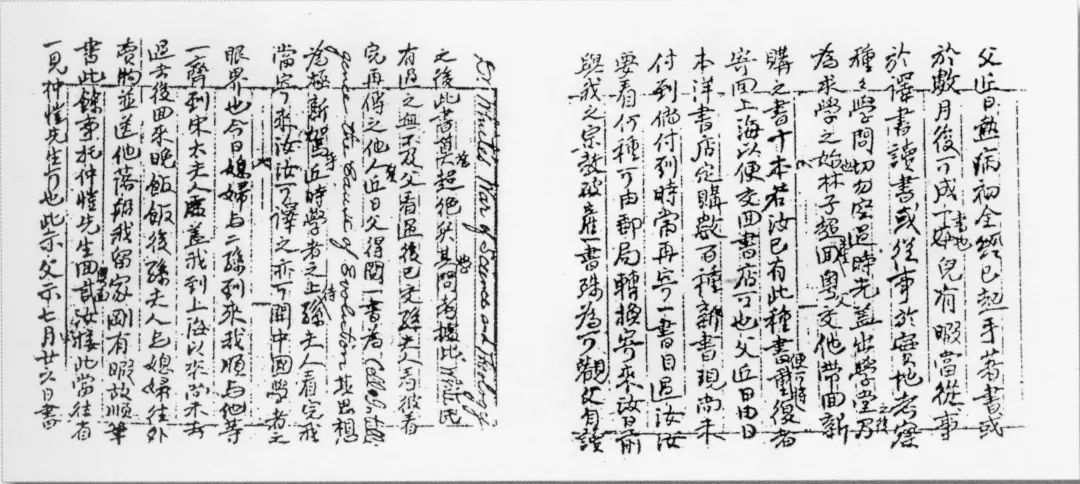 父近日熱病初全經已起手著書或
於數月後可成一書也兒有暇當從事
於譯書讀書或從事於實地考察
種々學問切勿空過時光蓋出學堂之後乃
為求學之始也林子超回粵交他帶回新
購之書十本若汝已有此種書重複者便可將
寄回上海以便交回書店可也父近日由日
本洋書店定購數百種新書現尚未
付到倘付到時當再寄一書目過汝汝
要看何種可由郵局轉換寄來汝日前
與我之宗教破產一書殊為可觀父自讀
Dr. White's War of Science and Theology
之後此書算為超絕矣其學問考據比White氏
有過之無不及父看過後已交孫夫人看彼看
完再傳之他人近日父得閱一書為Cell Intelli
gence the Cause of Evolution 其思想
為極新駕乎近時學者之上待孫夫人看完我
當寄來汝汝可譯之亦可開中國學者之
眼界也今日媳婦与二孫到來我順与他等
一齊到宋太夫人處蓋我到上海以來尚未去
過去後回來晚飯飯後孫夫人与媳婦往外
買物並送他落船我留家剛有暇故順筆
書此餘事托仲愷先生回詳汝接此當往省
一見仲愷先生可也此示父示七月廿六日書